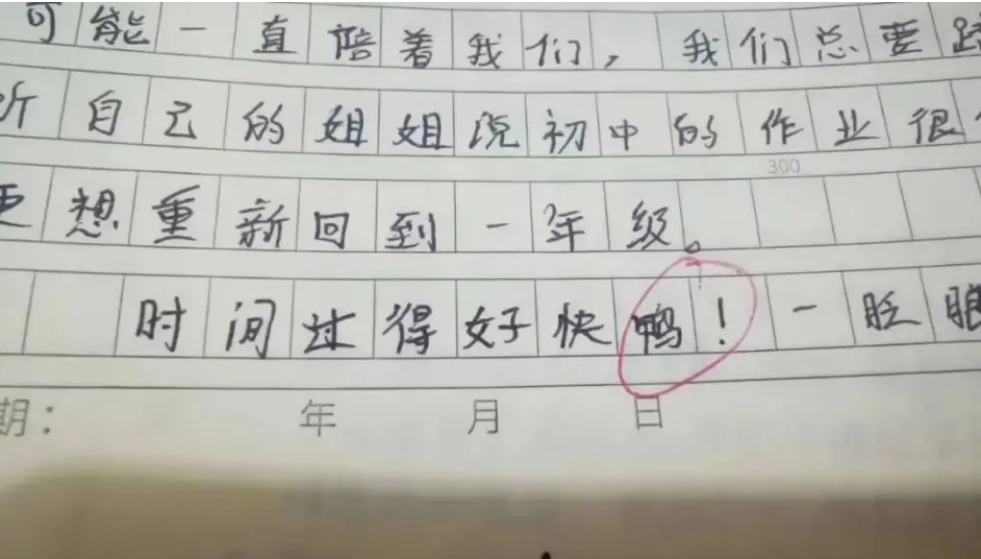 可能一直陪着我们，我们总要
听自己的姐姐说初中的作业很
300
更想重新回到一年级。
时间过得好快鸭！一眨眼
期： 年 月 日